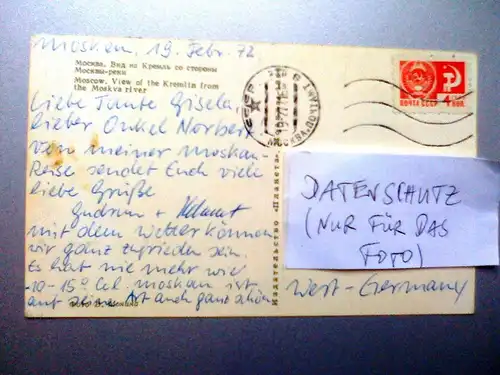 Moskau, 19. Febr. 72
Москва. Вид на Кремль со стороны
Москвы-реки
Moscow. View of the Kremlin from
the Moskva river
Liebe Tante Gisela,
lieber Onkel Norbert,
von meiner Moskau-
Reise sendet Euch viele
liebe Grüße
Gudrun + Helmut
mit dem Wetter können
wir ganz zufrieden sein.
Es hat nie mehr wie
-10-15° Cel. Moskau ist
auf seine Art auch ganz schön
Издательство «Планета»
МОСКВА
ПОЧТА СССР
DATENSCHUTZ
(NUR FÜR DAS
FOTO)
West-Germany